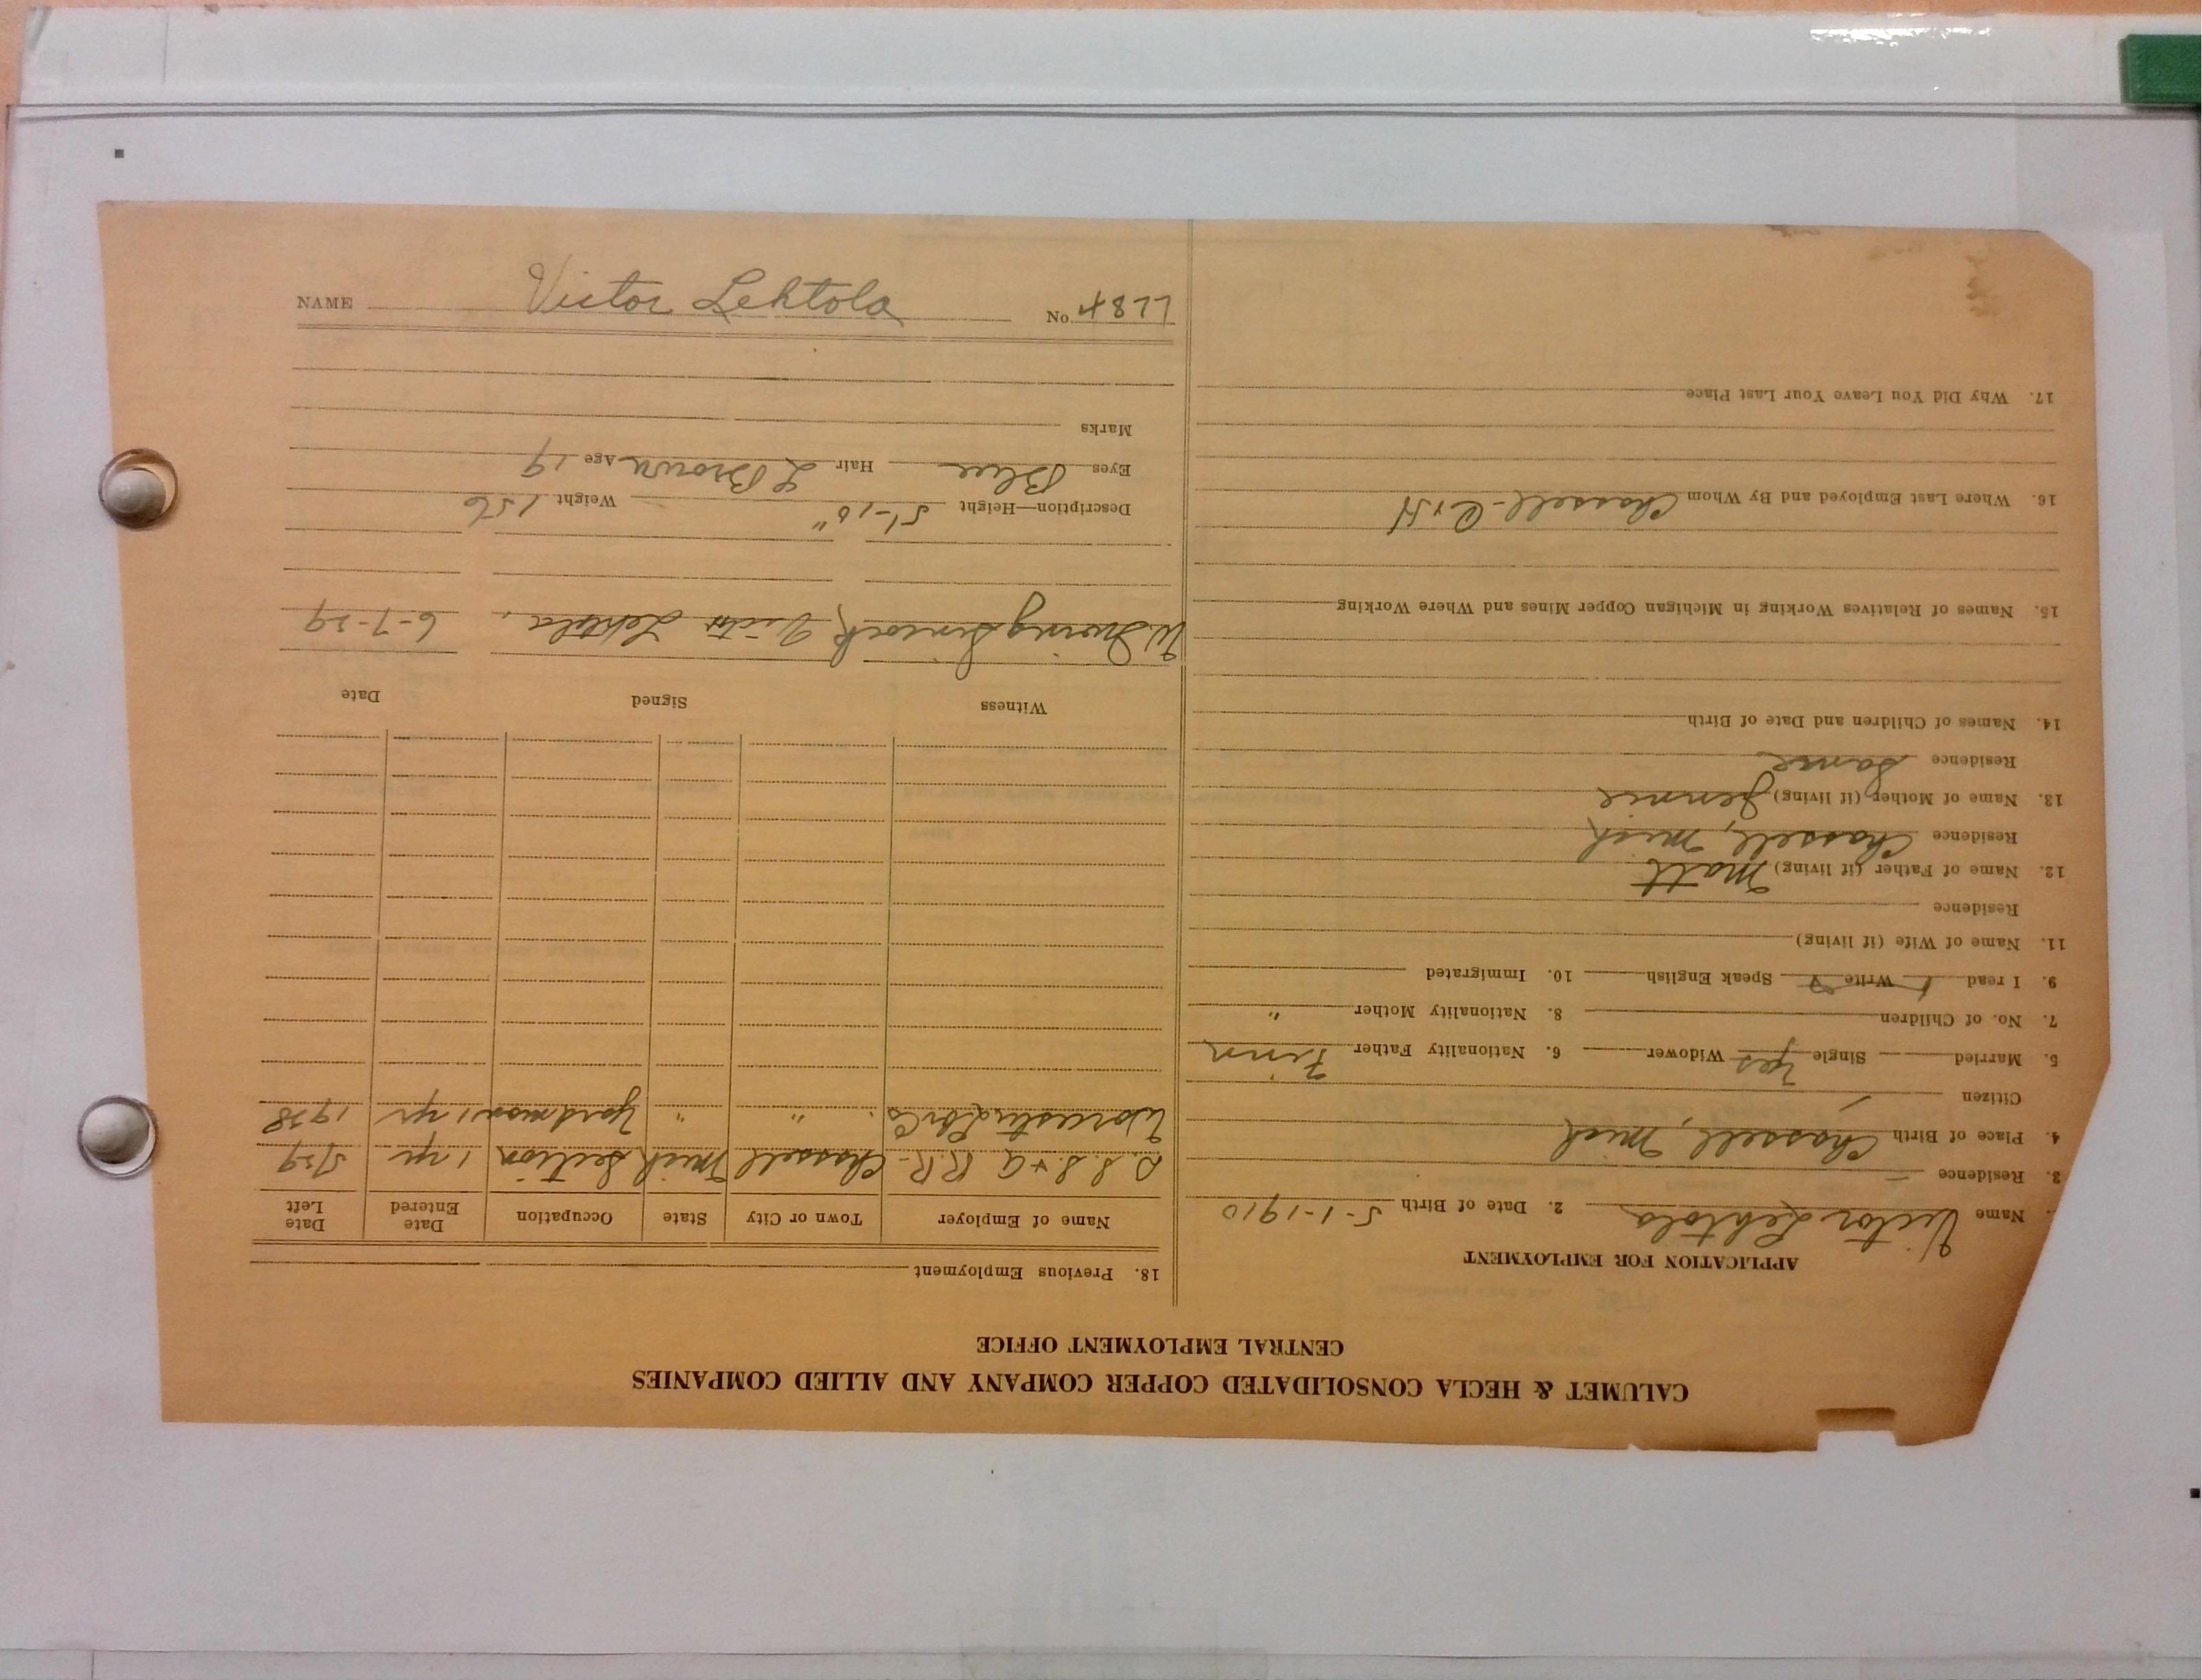 CALUMET & HECLA CONSOLIDATED COPPER COMPANY AND ALLIED COMPANIES
CENTRAL EMPLOYMENT OFFICE
APPLICATION FOR EMPLOYMENT
Name Victor Lehtola 2. Date of Birth 5-1-1910
3. Residence
4. Place of Birth Chassell, Mich
Citizen
5. Married Single Yes Widower 6. Nationality Father Finn
7. No. of Children 8. Nationality Mother "
9. I read Write Speak English 10. Immigrated
11. Name of Wife (if living)
Residence
12. Name of Father (if living) Matt
Residence Chassell, Mich
13. Name of Mother (if living) Jennie
Residence Same
14. Names of Children and Date of Birth
15. Names of Relatives Working in Michigan Copper Mines and Where Working
16. Where Last Employed and By Whom Chassell - C & H
17. Why Did You Leave Your Last Place
18. Previous Employment
Name of Employer Town or City State Occupation Date Entered Date Left
D.S.S. & A R.R. Chassell Mich Section 1 yr 5/29
Worcester Lbr Co " " Yardman 1 yr 1928
Witness Signed Date
W. Irving Simcock Victor Lehtola 6-7-29
Description—Height 5'-10" Weight 156
Eyes Blue Hair L Brown Age 19
Marks
NAME Victor Lehtola No.